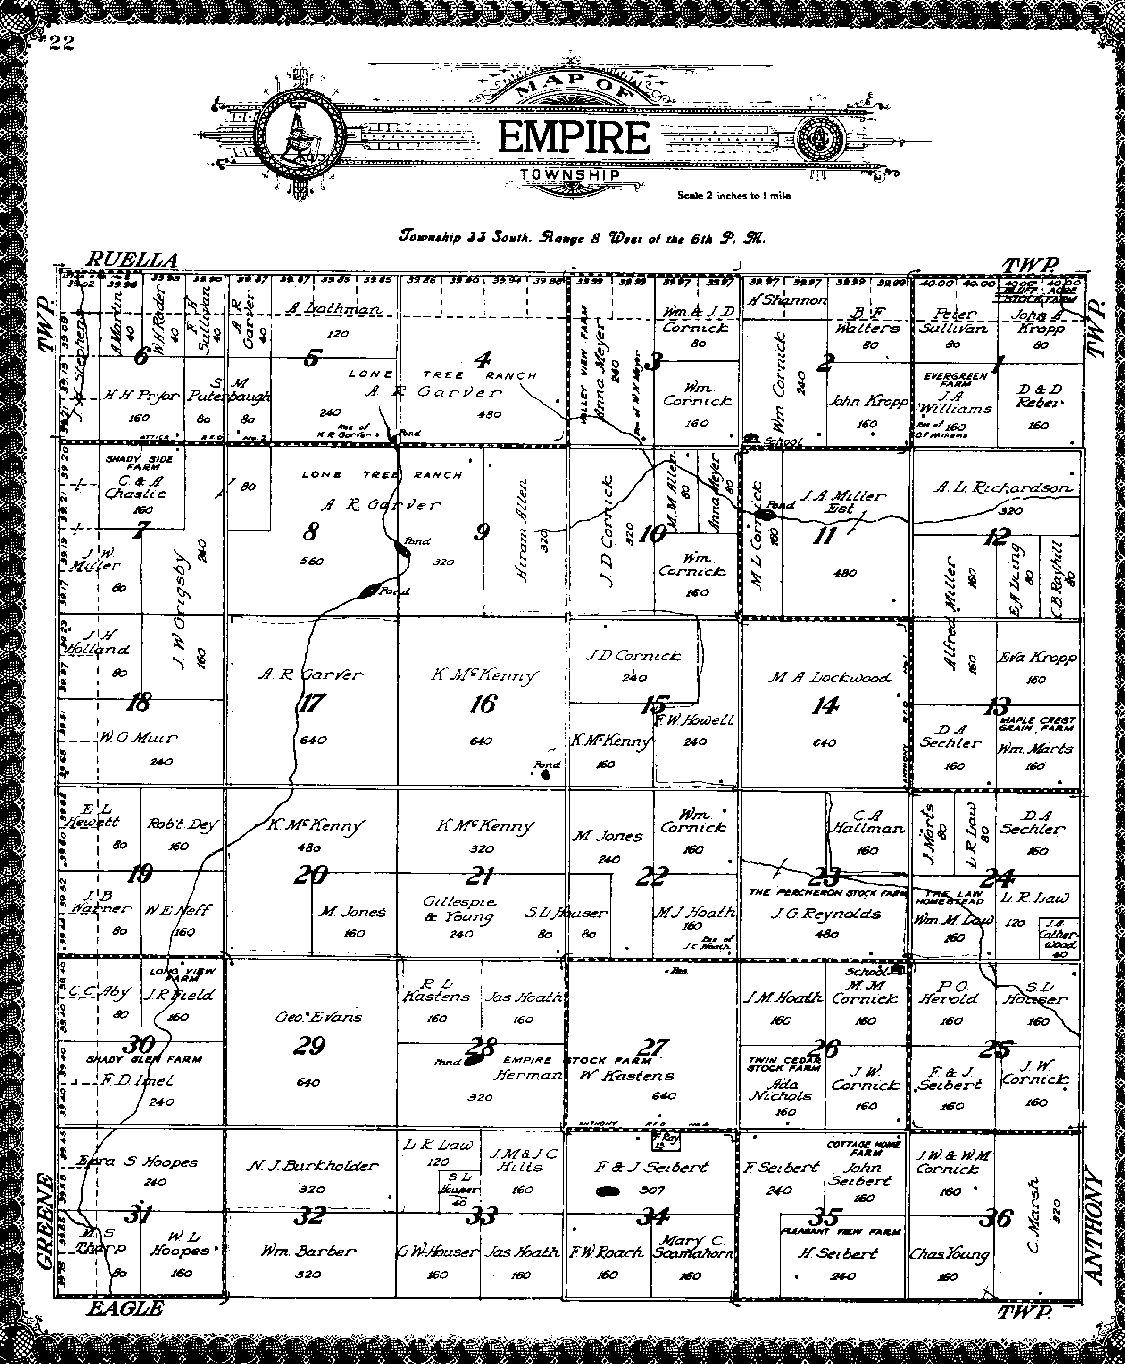 22
MAP OF
EMPIRE
TOWNSHIP
Scale 2 inches to 1 mile
Township 33 South. Range 8 West of the 6th P. M.
RUELLA
TWP.
TWP.
TWP.
6
A Martin
40
W H Reader
40
Sullivan
40
A R Garver
40
H H Pryor
160
80
80
5
A Lathman
120
LONE TREE RANCH
A R Garver
240
480
Pond
4
VALLEY VIEW FARM
Anna Meyer
240
3
Wm & J D Cornick
80
Wm. Cornick
160
H Shannon
Wm Cornick
240
2
B F Walters
80
John Kropp
160
School
Peter Sullivan
80
John A Kropp
80
1
EVERGREEN FARM
J A Williams
160
D & D Reber
160
SHADY SIDE FARM
C & A Chastie
160
7
80
J. W. Miller
80
J W Grigsby
240
160
LONE TREE RANCH
A R Garver
8
560
320
Pond
Pond
9
Hiram Allen
320
J D Cornick
320
10
M M Allen
80
Anna Meyer
80
Wm. Cornick
160
M L Cornick
160
Pond
J A Miller Est
11
480
A. L. Richardson
320
12
Alfred Miller
160
160
80
C B Rayhill
80
J H Holland
80
18
W G Muir
240
A. R Garver
17
640
K McKenny
16
640
Pond
J D Cornick
240
15
F W Howell
240
K McKenny
160
M A Lockwood
14
640
Eva Kropp
160
13
MAPLE CREST GRAIN FARM
D A Sechler
160
Wm. Marts
160
E L Hewett
80
Rob't Dey
160
19
J B Warner
80
W E Neff
160
K McKenny
480
20
M Jones
160
K McKenny
320
21
Gillespie & Young
240
S L Houser
80
80
M Jones
240
Wm. Cornick
160
22
M J Hoath
160
Res of J C Hoath
C A Hallman
160
23
THE PERCHERON STOCK FARM
J. G. Reynolds
480
J Marts
80
L R Law
80
D A Sechler
160
24
THE LAW HOMESTEAD
Wm. M Law
160
L R Law
120
40
C C Aby
80
LONG VIEW FARM
J R Field
160
30
SHADY GLEN FARM
F. D Imel
240
Geo. Evans
29
640
R L Hastens
160
Jas Hoath
160
28
Pond
EMPIRE STOCK FARM
Herman W Hastens
320
27
640
Res.
J M Hoath
160
School
M M Cornick
160
26
TWIN CEDAR STOCK FARM
Ada Nichols
160
J W. Cornick
160
P O. Herold
160
S L Houser
160
25
F & J. Seibert
160
J. W. Cornick
160
Ezra S Hoopes
240
31
M S Tharp
80
W L Hoopes
160
N. J. Burkholder
320
32
Wm. Barber
320
L R Law
120
S L Houser
40
J. M & J C Hills
160
33
G W Houser
160
Jas Hoath
160
F & J Seibert
307
34
F W Roach
160
Mary C. Scamahorn
160
F Seibert
240
COTTAGE HOME FARM
John Seibert
160
35
PLEASANT VIEW FARM
H Seibert
240
J. W. & W. M Cornick
160
C. Marsh
320
36
Chas Young
160
GREENE
ANTHONY
EAGLE
TWP.